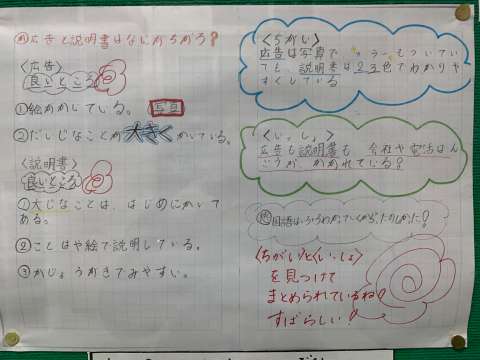 め広告と説明書はなにがちがう?
〈広告〉
良いところ
①絵がかいている。 写真
②だいじなことが大きくかいている。
〈説明書〉
良いところ
①大じなことは、はじめにかいて
ある。
②ことばや絵で説明している。
③かじょうがきでみやすい。
〈ちがい〉
広告は写真で
ても、説明書は2、3色でわかりや
すくしている
〈いっしょ〉
広告も説明書も、会社や電話ばん
ごうが、かかれている?
国語は
たのしかった!
〈ちがい〉と〈いっしょ〉
を見つけて
まとめられているね!
すばらしい!